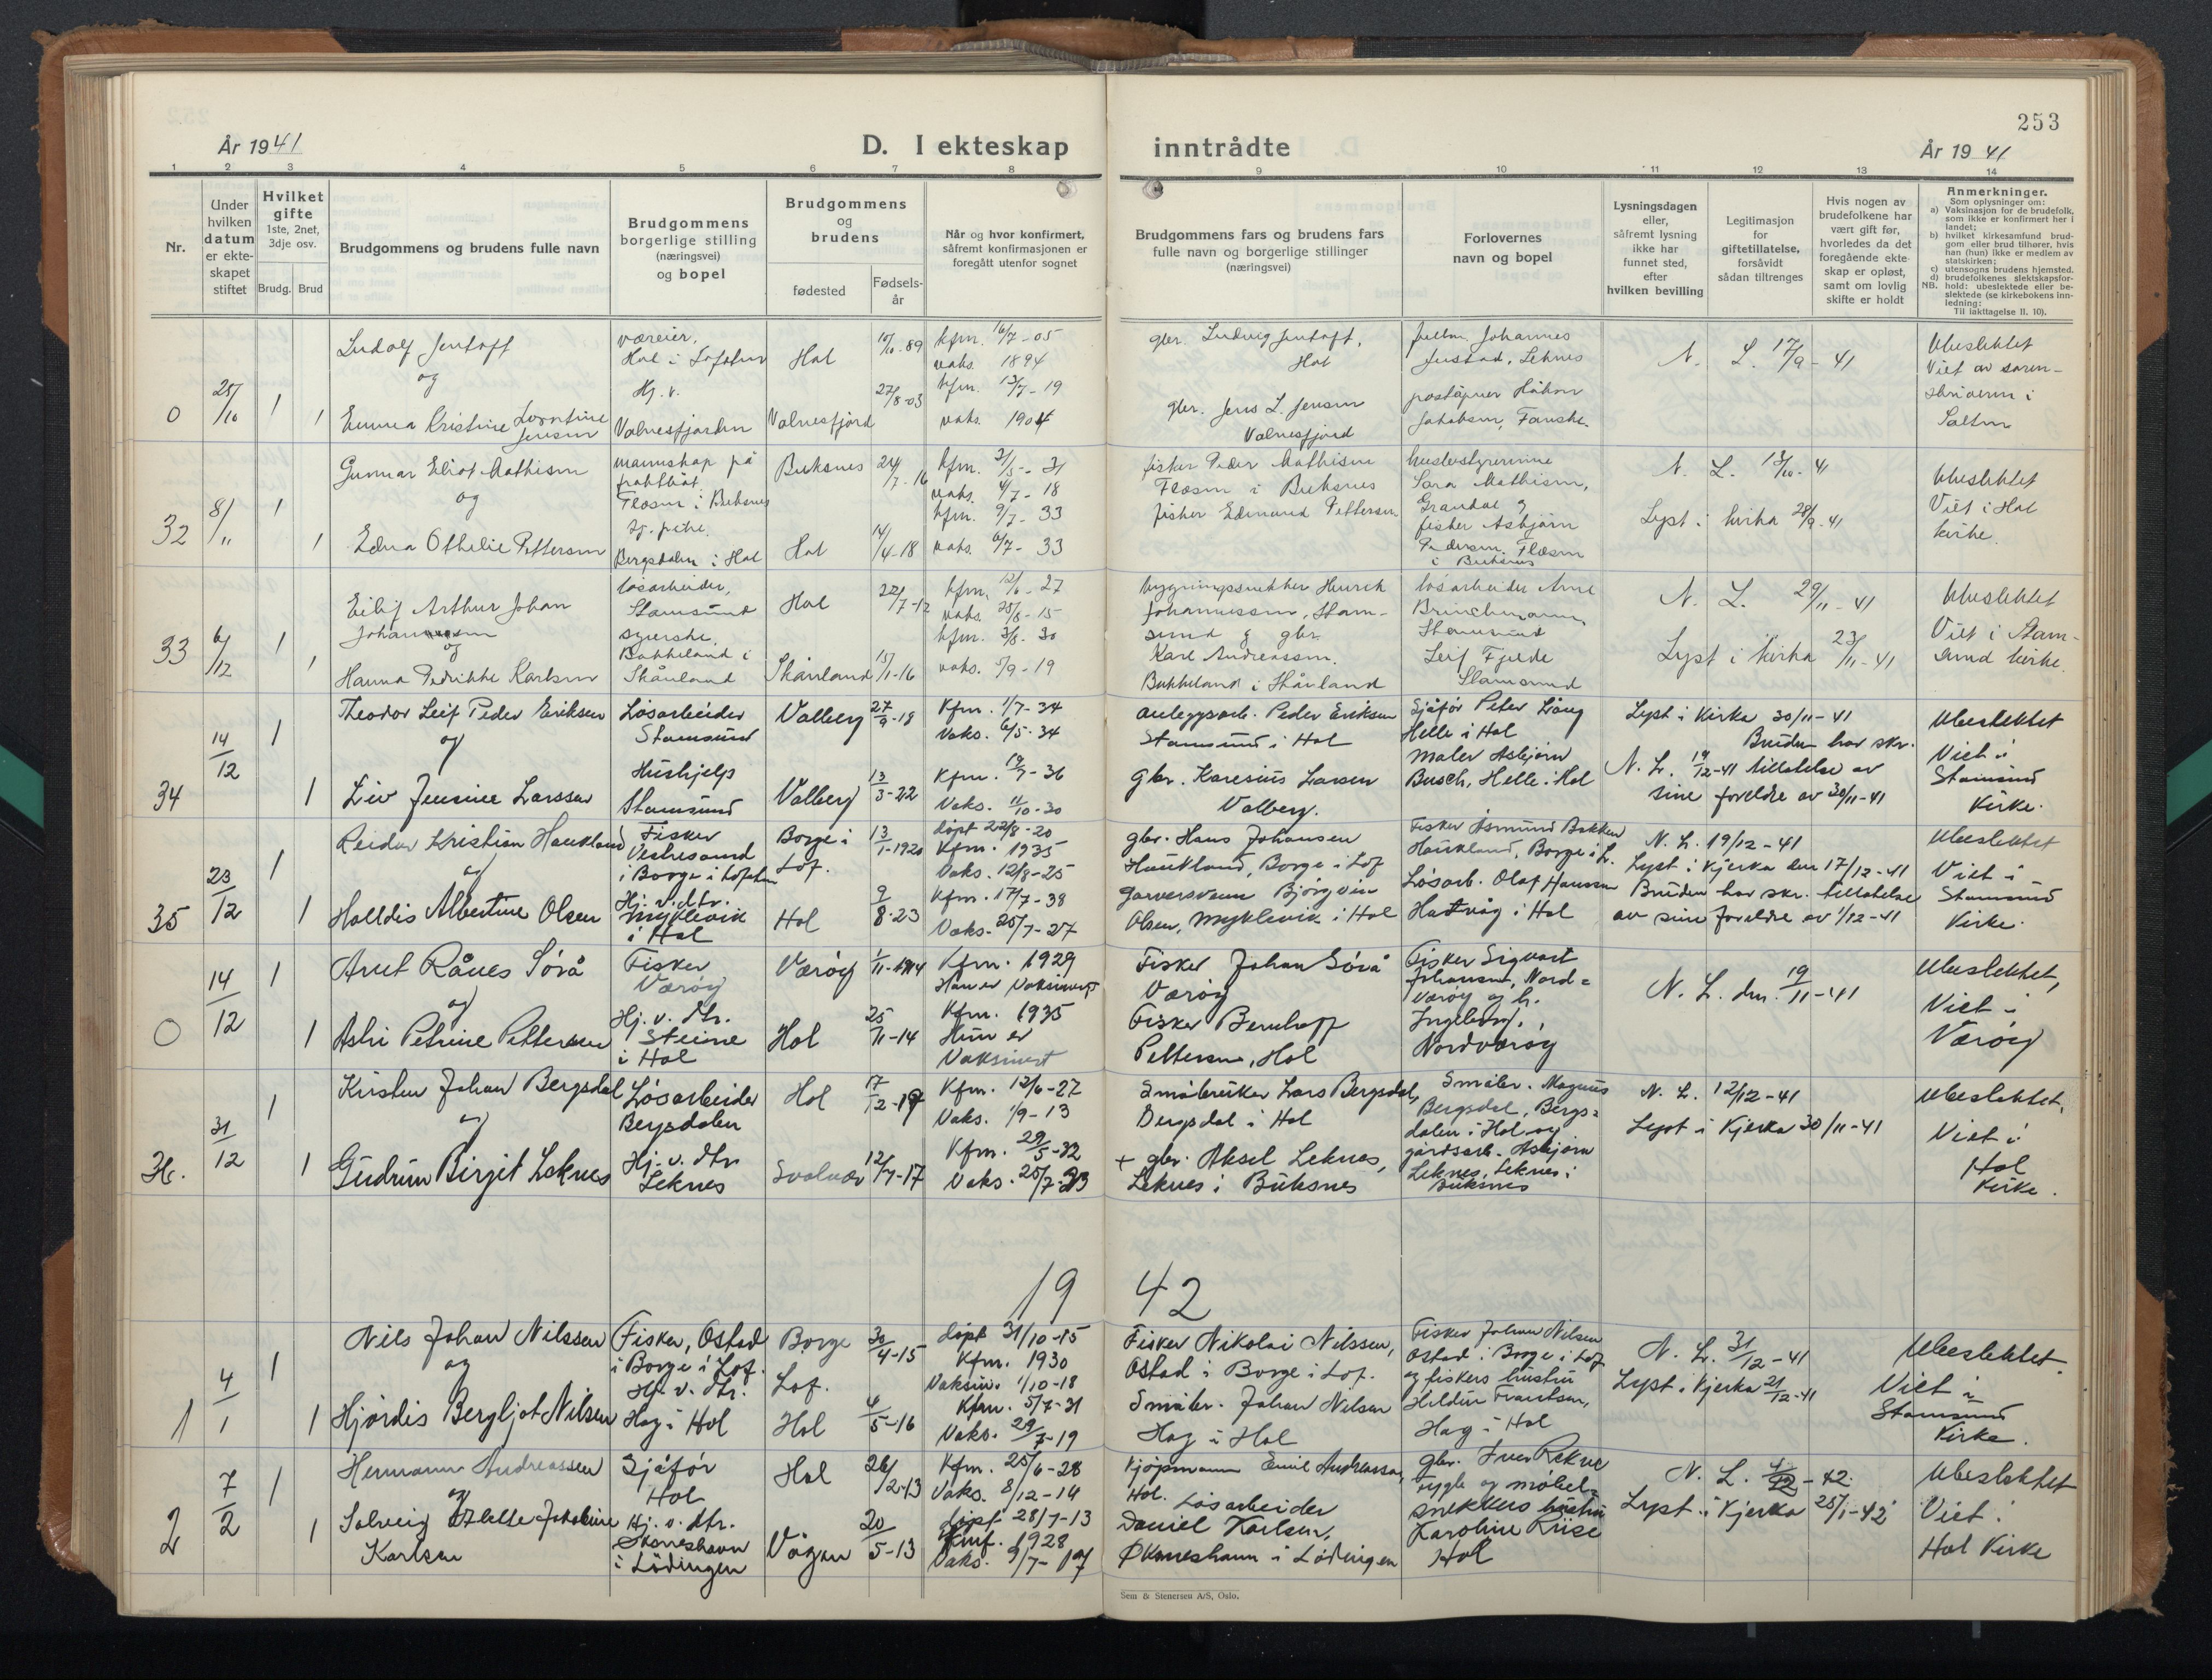 253
År 1941
D. I ekteskap inntrådte
År 1941
1 2 3 4 5 6 7 8 9 10 11 12 13 14
Nr.
Under hvilken datum er ekte-skapet stiftet
Hvilket gifte 1ste, 2net, 3dje osv.
Brudg. Brud
Brudgommens og brudens fulle navn
Brudgommens borgerlige stilling (næringsvei) og bopel
Brudgommens og brudens
fødested
Fødsels-år
Når og hvor konfirmert, såfremt konfirmasjonen er foregått utenfor sognet
Brudgommens fars og brudens fars fulle navn og borgerlige stillinger (næringsvei)
Forlovernes navn og bopel
Lysningsdagen eller, såfremt lysning ikke har funnet sted, efter hvilken bevilling
Legitimasjon for giftetillatelse, forsåvidt sådan tiltrenges
Hvis nogen av brudefolkene har vært gift før, hvorledes da det foregående ekte-skap er opløst, samt om lovlig skifte er holdt
Anmerkninger.
Som oplysninger om:
a) Vaksinasjon for de brudefolk, som ikke er konfirmert her i landet;
b) hvilket kirkesamfund brud-gom eller brud tilhører, hvis han (hun) ikke er medlem av statskirken;
c) utensogns brudens hjemsted.
d) brudefolkenes slektskapsfor-hold: ubeslektede eller be-slektede (se kirkebokens inn-ledning:
NB.
Til iakttagelse II. 10).
0
Ludolf Jentoft
og
Emma Kristine Leontine Jensen
1 1
væreier,
Hol i Lofoten
Hj. v.
Valnesfjorden
Hol
Valnesfjord
27/8-03
kfm. 16/7-05
vaks. 1894
kfm. 13/7-19
vaks. 1904
gbr. Ludvig Jentoft,
Hol
gbr. Jens L. Jensen
Valnesfjord
Johannes
Leknes
poståpner Håkon
Jakobsen, Fauske.
N. L. 17/9-41
Ubeslektet
Viet av soren-
skriveren i
Salten
32
8/11
1 1
Gunnar Eliot Mathisen
og
Edna Othelie Pettersen
mannskap på
fraktbåt.
Flæsen i Buksnes
Bergsdalen i Hol
Buksnes
Hol
24/7-16
14/4-18
kfm. 31
vaks. 4/7-18
kfm. 9/7-33
vaks. 6/7-33
fisker Peder Mathisen
Flæsen i Buksnes
fisker Edmund Pettersen
husbestyrerinne
Sara Mathisen,
Gravdal og
fisker Asbjørn
Pedersen. Flæsen
i Buksnes
N. L. 13/10-41
Lyst i kirka 28/9-41
Ubeslektet
Viet i Hol
kirke.
33
6/12
1 1
Eilif Arthur Johan
Johannessen
og
Hanna Fredrikke Karlsen
løsarbeider,
Stamsund
syerske.
Bakkeland i
Skånland
Hol
Skånland
22/7-12
15/1-16
kfm. 12/6-27
vaks. 25/8-15
kfm. 3/8-30
vaks. 5/9-19
bygningssnekker Henrik
Johannessen, Stam-
sund & gbr.
Karl Andreassen.
Bakkeland i Skånland
løsarbeider Arne
Brinchmann,
Stamsund
Leif Fjelde
Stamsund
N. L. 29/11-41
Lyst i kirka 23/11-41
Ubeslektet
Viet i Stam-
sund kirke.
34
14/12
1 1
Theodor Leif Peder Eriksen
og
Liv Jensine Larssen
Løsarbeider
Stamsund
Hushjelp
Stamsund
Valberg
Valberg
27/9-18
13/3-22
Kfm. 1/7-34
Vaks. 6/5-34
Kfm. 19/7-36
Vaks. 11/10-30
anleggsarb. Peder Eriksen
Stamsund i Hol
gbr. Karesius Larsen
Valberg.
Sjåfør Peter Lång
Helle i Hol
Maler Asbjørn
Busch, Helle i Hol
Lyst i Kirka 30/11-41
Bruden har skr.
N. L. 19/12-41 tillatelse av
sine foreldre av 30/11-41
Ubeslektet
Viet i
Stamsund
Kirke.
35
23/12
1 1
Reidar Kristian Haukland
og
Halldis Albertine Olsen
Fisker
Vestresand
i Borge i Lofoten
Hj. v. dtr.
Myklevik
i Hol
Borge i
Lof.
Hol
13/1-1920
9/8-23
døpt 22/8-20
Kfm. 1935
Vaks. 12/8-25
Kfm. 17/7-38
Vaks. 25/7-27
gbr. Hans Johansen
Haukland, Borge i Lof
garversvenn Bjørgvin
Olsen, Myklevik i Hol
Fisker Asmund Bakken
Haukland, Borge i L.
Løsarb. Olaf Hanssen
Hattvåg i Hol
N. L. 19/12-41
Lyst i Kjerka den 17/12-41
Bruden har skr. tillatelse
av sine foreldre av 1/12-41
Ubeslektet
Viet i
Stamsund
Kirke.
0
14/12
1 1
Arnt Rånes Sørå
og
Astri Petrine Pettersen
Fisker
Værøy
Hj. v. dtr.
Steine
i Hol
Værøy
Hol
1/11-1914
25/11-14
Kfm. 1929
Han er Vaksinert
Kfm. 1935
Hun er
Vaksinert
Fisker Johan Sørå
Værøy
Fisker Bernhoff
Pettersen, Hol
Fisker Sigvart
Johansen, Nord=
Værøy og h.
Ingeborg,
Nordværøy
N. L. den 19/11-41
Ubeslektet,
Viet i
Værøy
31/12
1 1
Kristen Johan Bergsdal
og
Gudrun Birgit Leknes
Løsarbeider
Bergsdalen
Hj. v. dtr
Leknes
Hol
Svolvær
17/12
12/7-17
Kfm. 12/6-27
Vaks. 1/9-13
Kfm. 29/5-32
Vaks. 25/7
Småbruker Lars Bergsdal,
Bergsdal i Hol
+ gbr. Aksel Leknes,
Leknes i Buksnes
Småbr. Magnus
Bergsdal, Bergs=
dalen i Hol og
gårdsarb. Asbjørn
Leknes, Leknes i
Buksnes
N. L. 12/12-41
Lyst i Kjerka 30/11-41
Ubeslektet.
Viet i
Hol
Kirke.
1942
1
4/1
1 1
Nils Johan Nilssen
og
Hjørdis Bergljot Nilsen
Fisker, Ostad
i Borge i Lof.
Hj. v. dtr.
Hag i Hol
Borge
Lof.
Hol
30/4-15
4/5-16
døpt 31/10-15
Kfm. 1930
Vaksin. 1/10-18
Kfm. 5/7-31
Vaks. 29/7-19
Fisker Nikolai Nilssen,
Ostad i Borge i Lof.
Småbr. Johan Nilsen
Hag i Hol
Fisker Johan Nilsen
Ostad i Borge i Lof
og fiskers hustru
Hildur Frantsen,
Hag i Hol
N. L. 31/12-41
Lyst i Kjerka 21/12-41
Ubeslektet.
Viet i
Stamsund
Kirke.
2
7/2
1 1
Hermann Andreassen
og
Solveig Jakobine
Karlsen
Sjåfør
Hol
Hj. v. dtr.
Økneshavn
i Lødingen
Hol
Vågan
26/2-13
20/5-13
Kfm. 25/6-28
Vaks. 8/12-14
døpt 28/7-13
Kmf. 1928
Vaks. 9/7-17
Kjøpmann Emil Andreassen,
Hol.
Løsarbeider
Daniel Karlsen,
Økneshavn i Lødingen
gbr. Iver Rekve
Fygle og møbel=
snekkers hustru
Karoline Riise
Hol
N. L. -42.
Lyst i Kjerka 25/1-42
Ubeslektet
Viet i
Hol Kirke
Sem & Stenersen A/S, Oslo.